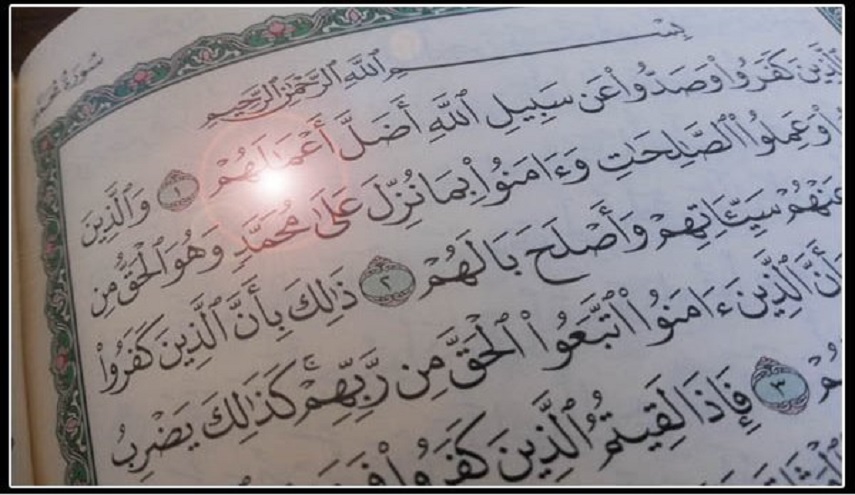 سورة محمد
بِسْمِ ٱللَّهِ ٱلرَّحْمَٰنِ ٱلرَّحِيمِ
ٱلَّذِينَ كَفَرُوا۟ وَصَدُّوا۟ عَن سَبِيلِ ٱللَّهِ أَضَلَّ أَعْمَٰلَهُمْ ١ وَٱلَّذِينَ
وَعَمِلُوا۟ ٱلصَّٰلِحَٰتِ وَءَامَنُوا۟ بِمَا نُزِّلَ عَلَىٰ مُحَمَّدٍ وَهُوَ ٱلْحَقُّ مِن
عَنْهُمْ سَيِّـَٔاتِهِمْ وَأَصْلَحَ بَالَهُمْ ٢ ذَٰلِكَ بِأَنَّ ٱلَّذِينَ كَفَرُوا۟
وَأَنَّ ٱلَّذِينَ ءَامَنُوا۟ ٱتَّبَعُوا۟ ٱلْحَقَّ مِن رَّبِّهِمْ ۚ كَذَٰلِكَ يَضْرِبُ
هُمْ ٣ فَإِذَا لَقِيتُمُ ٱلَّذِينَ كَفَرُوا۟